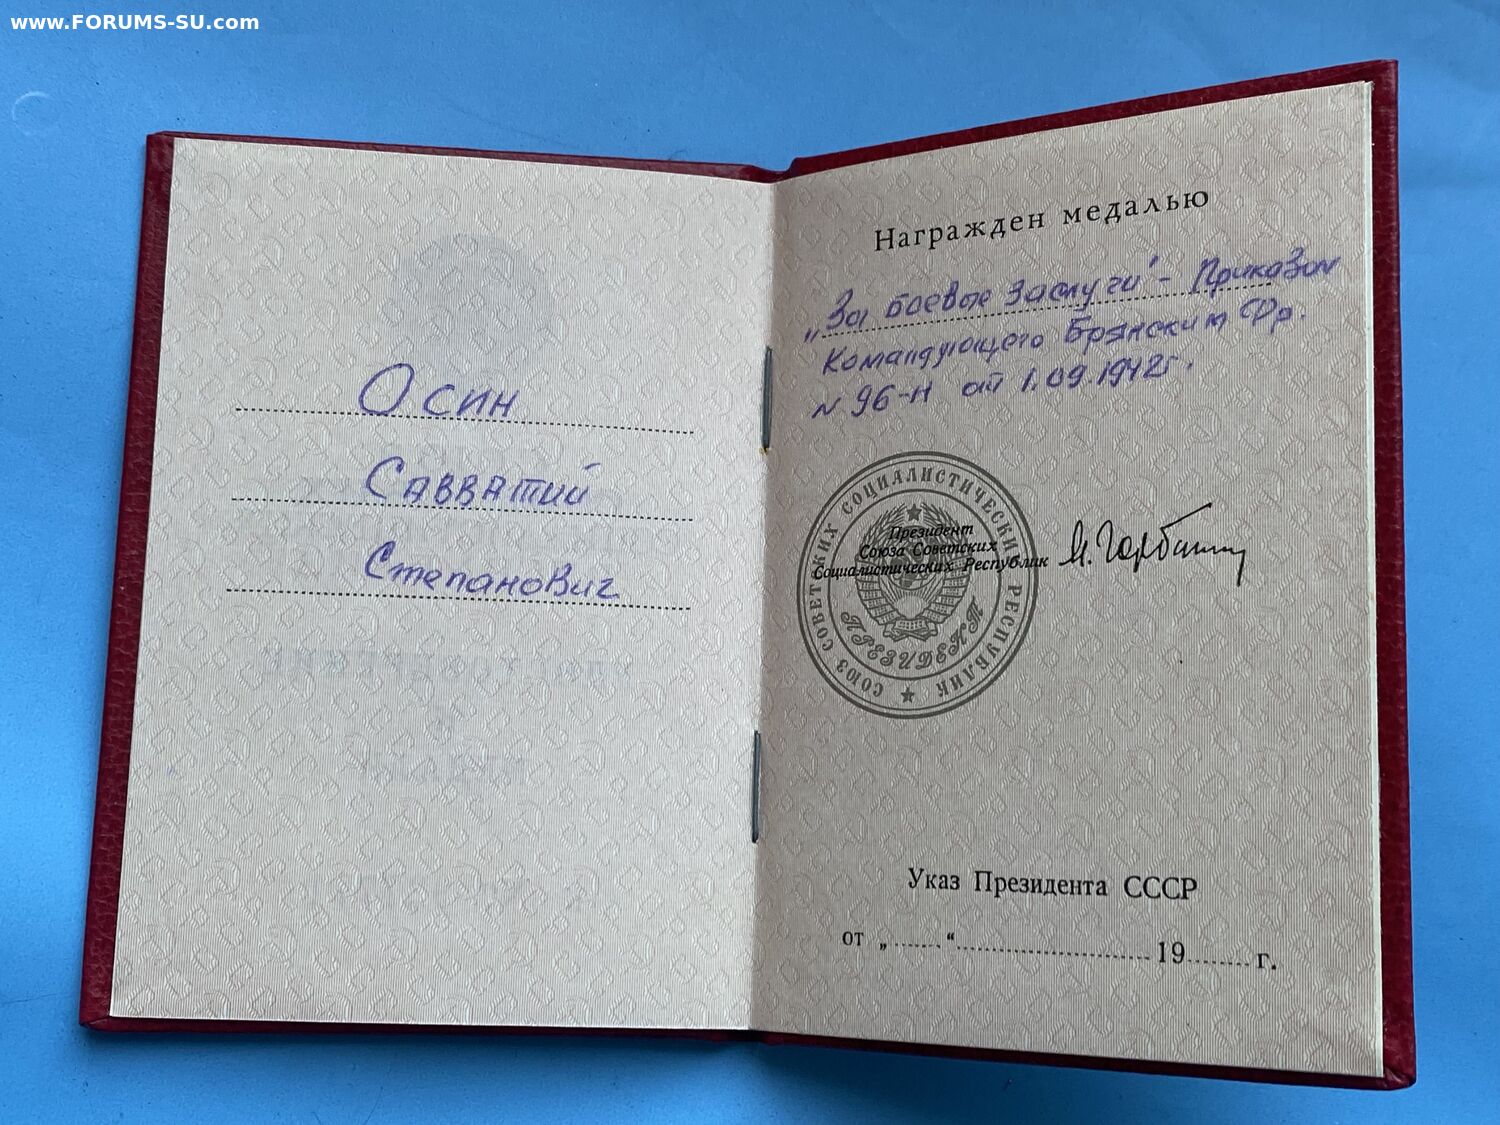 www.FORUMS-SU.com
Осин
Савватий
Степанович
Награжден медалью
„За боевые заслуги" - Приказом
Командующего Брянским Фр.
N 96-Н от 1.09.1942г.
СОЮЗ СОВЕТСКИХ СОЦИАЛИСТИЧЕСКИХ РЕСПУБЛИК
ПРЕЗИДЕНТ
Президент
Союза Советских
Социалистических Республик
М. Горбачев
Указ Президента СССР
от „......“.............................. 19......... г.